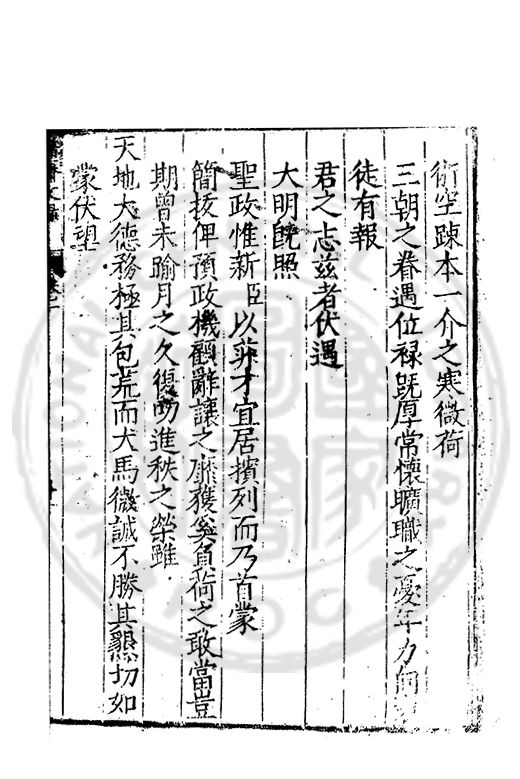 術空踈本一介之寒微荷
三朝之眷遇位禄既厚常懷曠職之憂年力
徒有報
君之志兹者伏遇
大明皃照
聖政惟新臣以菲才宜居擯列而乃首蒙
簡拔俾預政機顧辭讓之靡獲奚負荷之敢當豈
期曾未踰月之久復叨進秩之榮雖
天地大德務極其包荒而犬馬微誠不勝其懇切如
蒙伏望